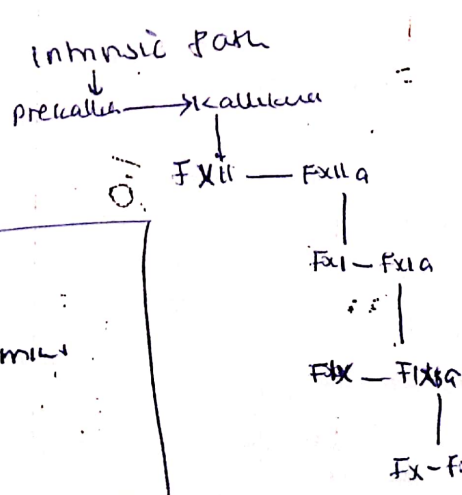 Intrinsic Path
prekallkn → kallikrein
FXII — FXIIa
FXI — FXIa
FIX — FIXa
FX - F